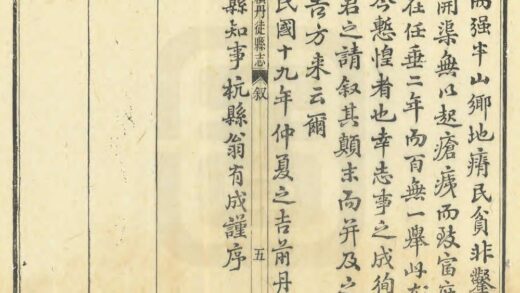 强半山鄉地瘠民貧非鑿
開渠無以起瘡痍而致富
在任垂二年而百無一舉此
今慙惶者也幸志事之成徇
君之請叙其顛末而并及之
告方来云爾
民國十九年仲夏之吉前丹
丹徒縣志 叙 五
縣知事杭縣翁有成謹序